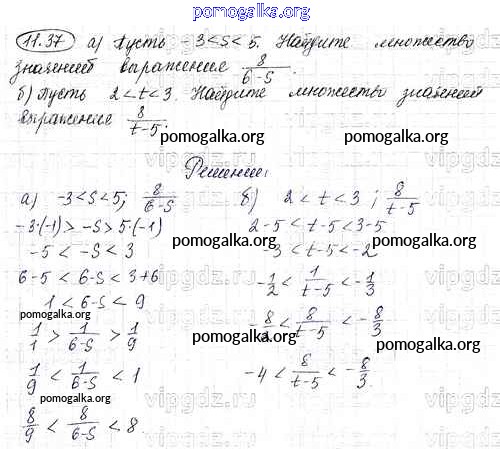 pomogalka.org
11.37 а) Пусть -3<s<5. Найдите множество
значений выражения 8/(6-s).
б) Пусть 2<t<3. Найдите множество значений
выражения 8/(t-5).
pomogalka.org pomogalka.org
Решение:
а) -3<s<5; 8/(6-s)
б) 2<t<3; 8/(t-5)
-3·(-1)>-s>5·(-1)
2-5<t-5<3-5
pomogalka.org pomogalka.org
-5<-s<3
-3<t-5<-2
6-5<6-s<3+6
-1/2<1/(t-5)<-1/3
1<6-s<9
pomogalka.org
1/1>1/(6-s)>1/9
-8/2<8/(t-5)<-8/3
pomogalka.org
1/9<1/(6-s)<1
-4<8/(t-5)<-8/3.
pomogalka.org
8/9<8/(6-s)<8.
vipgdz.ru